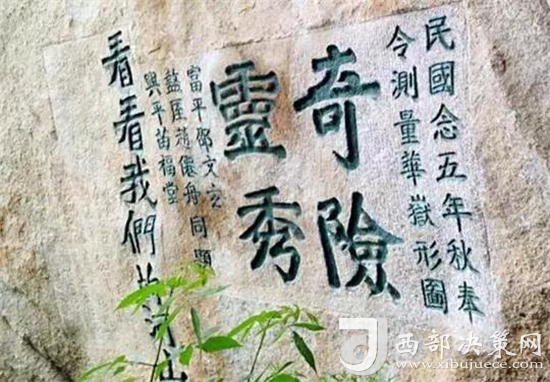 民國念五年秋奉
令測量華嶽形圖
奇險
靈秀
富平
興平苗福堂
同題
看看我們的河山
西部决策网
www.xibujuece.com